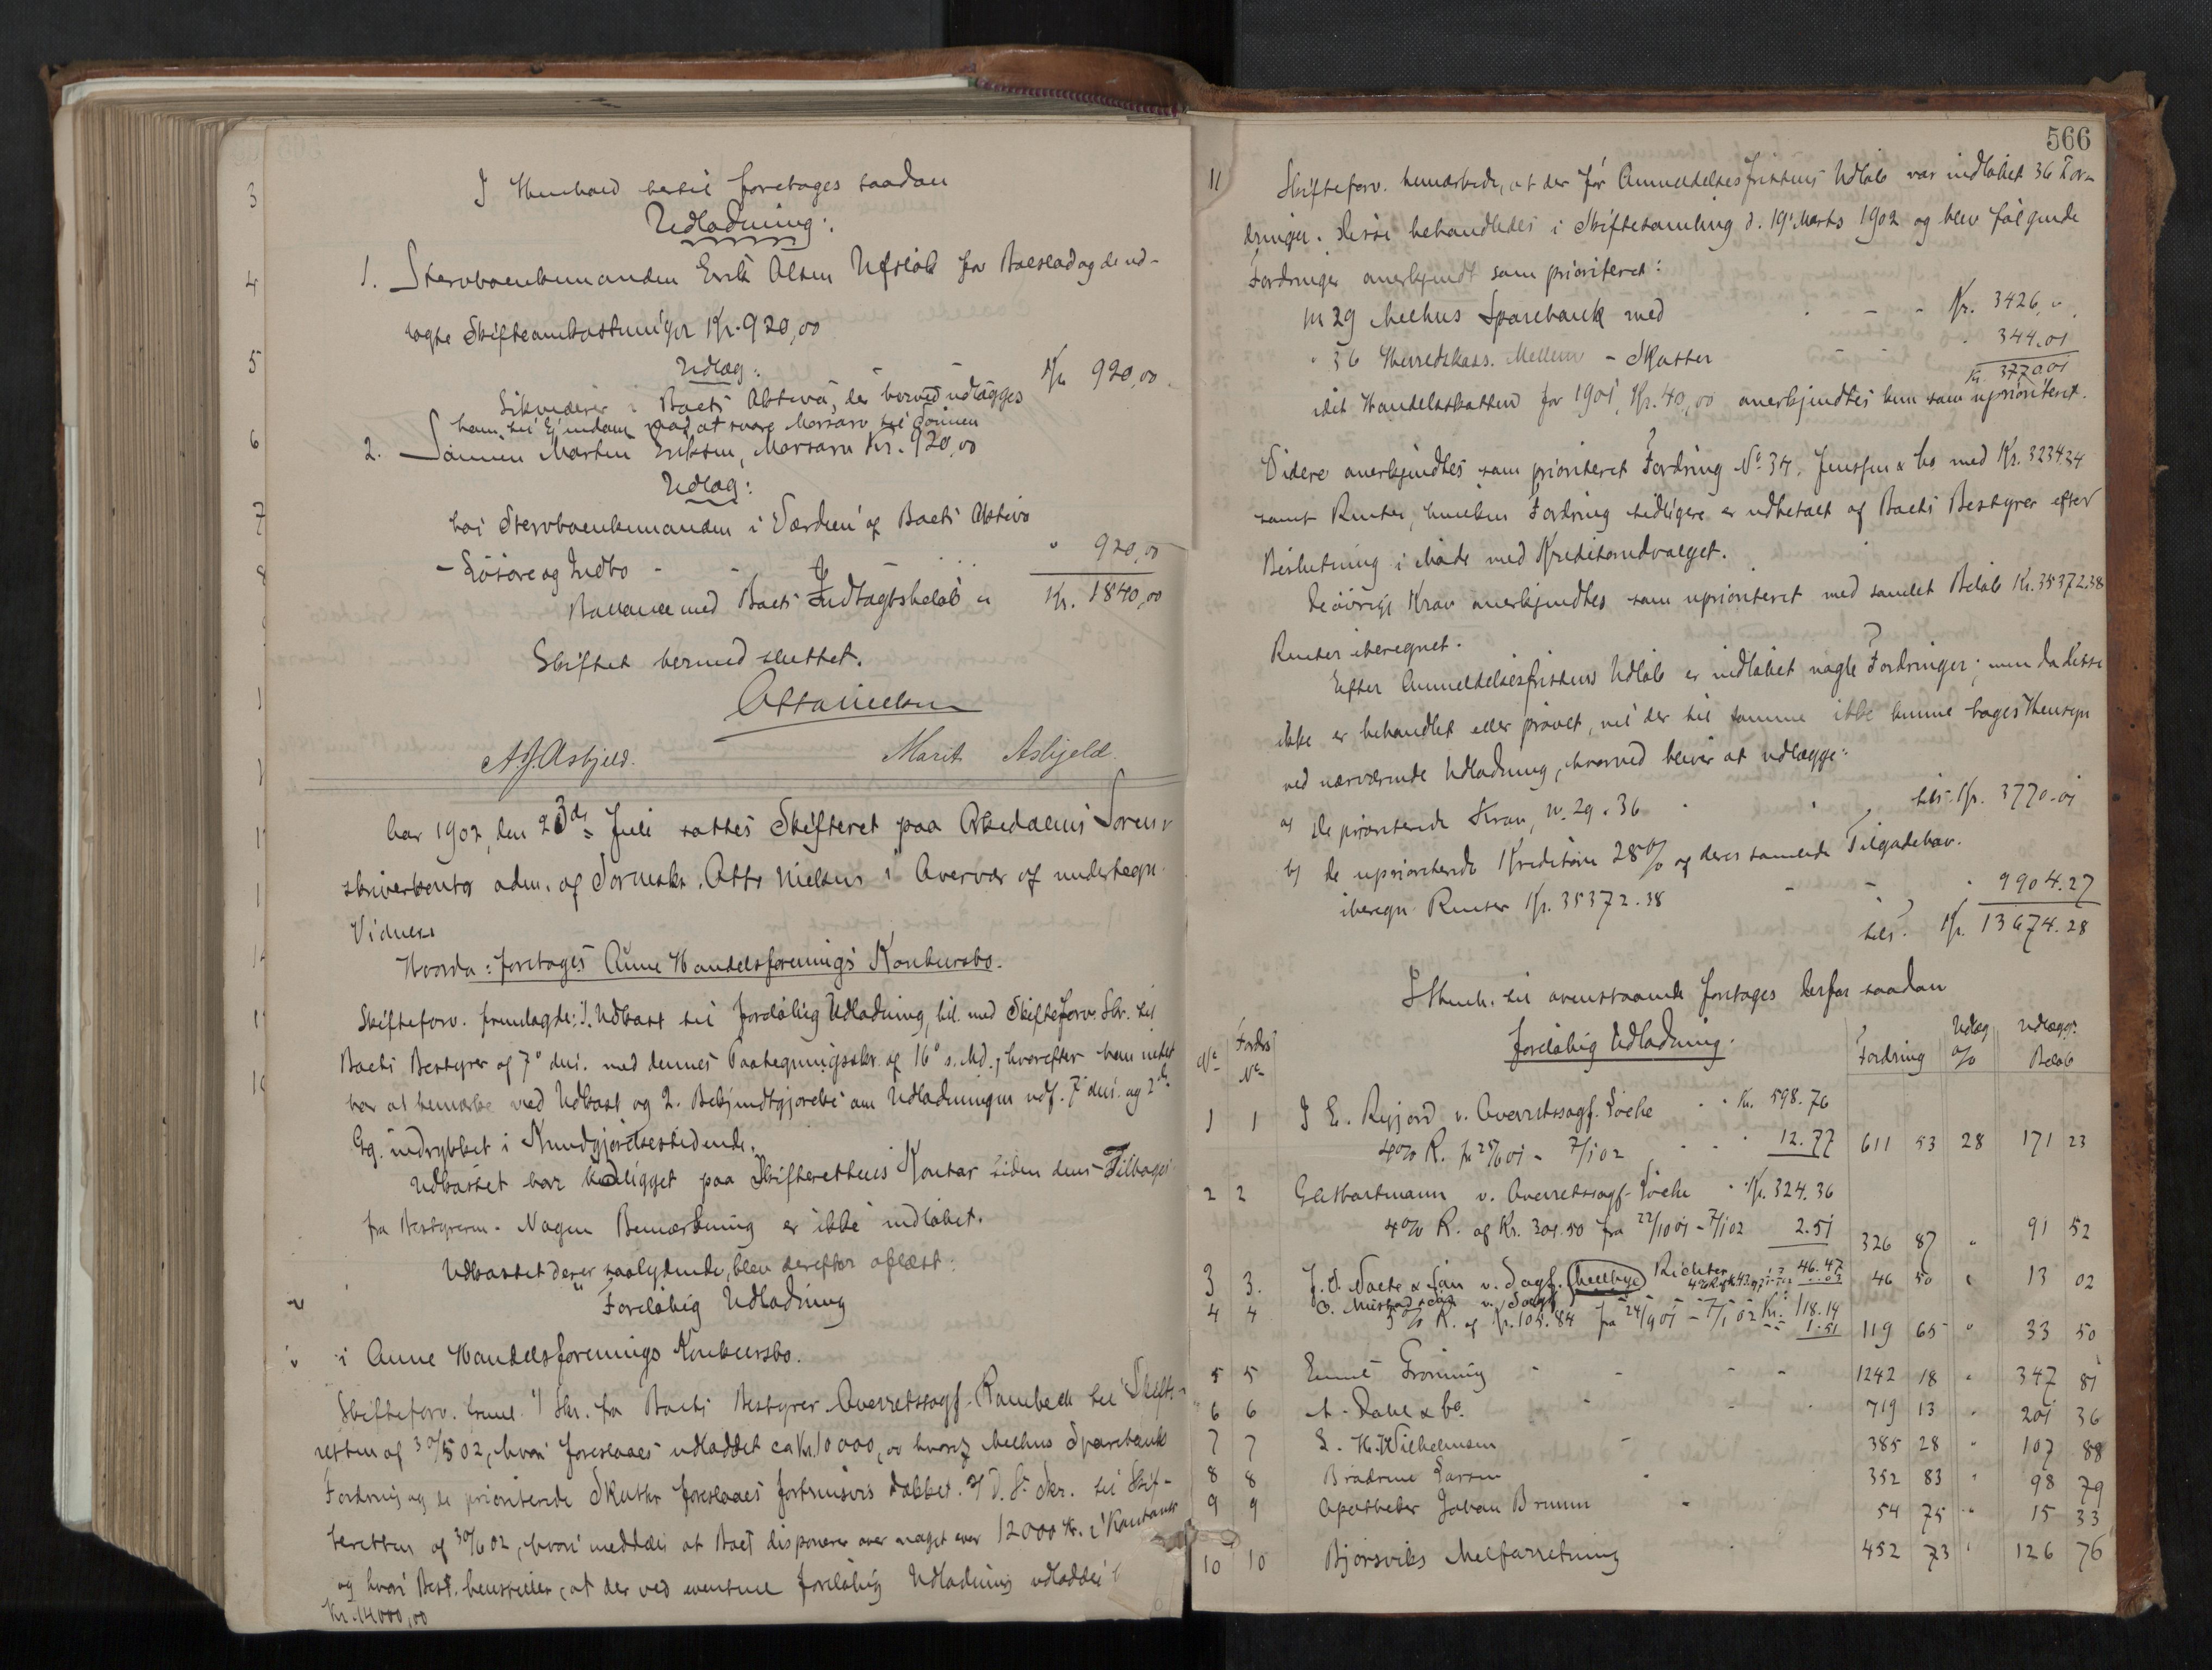 I Henhold hertil foretages saadan
Udlodning:
1. Stervboenkemanden Erik Olsen Ufsløb for Boeslod og de ud-
lagte Skifteomkostninger Kr. 920,00
Udlæg:
Likviderer i Boets Aktiva, der herved udlægges Kr. 920,00
ham til Eiendom mod at svare Morsarv til Sønnen
2. Sønnen Morten Eriksen, Morsarv Kr. 920,00
Udlæg:
hos Stervboenkemanden i Værdien af Boets Aktiva
- Løsøre og Indbo - - - " 920,00
Ballance med Boets Indtægtsbeløb " Kr. 1840,00
Skiftet hermed sluttet.
Otto Nielsen
A. J. Asbjeld. Marit Asbjeld.
Aar 1902, den 23de Juli sattes Skifteret paa Orkedalens Soren-
skriverkontor adm. af Sorenskr. Otto Nielsen i Overvær af undertegn.
Vidner
Hvorda: foretages Aune Handelsforenings Konkursbo.
Skifteforv. fremlagde: 1. Udkast til foreløbig Udlodning, bil. med Skifteforv. Skr. til
Boets Bestyrer af 7de ds. med dennes Paategningsskr. af 16de s. Md., hvorefter han intet
har at bemærke ved Udkast og 2. Bekjendtgjørelse om Udlodningen udf. 7 ds. og 2de
Gg. indrykket i Kundgjørelsestidende.
Udkastet har henligget paa Skifterettens Kontor siden dens Tilbage
fra Bestyreren. Nogen Bemærkning er ikke indløbet.
Udkastet der er saalydende, blev derefter oplæst:
" Foreløbig Udlodning
i Aune Handelsforenings Konkursbo.
Skifteforv. freml. 1) Skr. fra Boets Bestyrer Overretssagf. Rambech til Skifte-
retten af 30/5 02, hvori foreslaaes udloddet ca Kr. 10000,00 hvoraf Melhus Sparebanks
Fordring og de prioriterede Skatter foreslaaes fortrinsvis dækket. 2) D. S. Skr. til Skif-
teretten af 30/6 02, hvori meddeles at Boet disponerer over noget over 12000 Kr. i Kontanter
og hvori Best. henstiller, at der ved eventuel foreløbig Udlodning udloddes
Kr. 14000,00
566
11 Skifteforv. bemærkede, at der før Anmeldelsesfristens Udløb var indløbet 36 For-
dringer. Disse behandledes i Skiftesamling d. 19 Marts 1902 og blev følgende
Fordringer anerkjendt som prioriteret:
nr 29 Melhus Sparebank med - - Kr. 3426,"
" 36 Herredskass. Mellem - Skatter " 344.01
Kr. 3770.01
idet Handelsskatten for 1901, Kr. 40,00 anerkjendtes kun som uprioriteret.
Videre anerkjendtes som prioriteret Fordring No 34. Jenssen & Co med Kr. 3234.34
samt Renter, hvilken Fordring tidligere er udbetalt af Boets Bestyrer efter
Beslutning i Møde med Kreditorudvalget.
De øvrige Krav anerkjendtes som uprioriteret med samlet Beløb Kr. 35372.38
Renter iberegnet.
Efter Anmeldelsesfristens Udløb er indløbet nogle Fordringer; men da disse
ikke er behandlet eller prøvet, vil der til samme ikke kunne tages Hensyn
ved nærværende Udlodning, hvorved bliver at udlægge:
a) De prioriterede Krav, nr. 29 . 36 " " tils. Kr. 3770.01
b) de uprioriterede Kreditorer 28% af deres samlede Tilgodehav.
iberegn. Renter Kr. 35372.38 - - " 9904.27
tils. Kr. 13674.28
I Henh. til ovenstaaende foretages derfor saadan
foreløbig Udlodning.
No Fordrs No Fordring Udlæg % Udlægg. Beløb
1 1 I E. Rejjord v. Overretssagf. Løche " Kr. 598.76
4% R. fra 25/6 01 - 7/1 02 " 12.77 611 53 28 171 23
2 2 G. Hartmann v. Overretssagf. Løche " Kr. 324.36
4% R. af Kr. 301.50 fra 22/10 01 - 7/1 02 2.51 326 87 " 91 52
3 3. & Søn v. Sagf. Richter 46.47 46 50 " 13 02
4 4 O. Mustad & Søn v. Sagf.
5% R. af Kr. 105.84 fra 24/9 01 - 7/1 02 Kr. 118.14 1.51 119 65 " 33 50
5 5 Emil Froning - - - - 1242 18 " 347 81
6 6 A. Dahl & Co. - - 719 13 " 201 36
7 7 L. H. Wilhelmsen - 385 28 " 107 88
8 8 Brødrene Larsen " 352 83 " 98 79
9 9 Apotheker Johan Bruun - 54 75 " 15 33
10 10 Bjørsviks Melforretning " 452 73 " 126 76